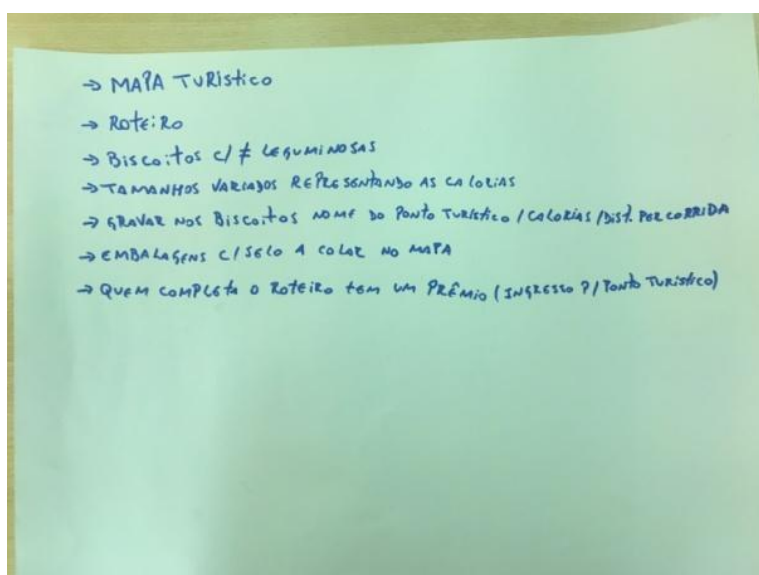 → MAPA TURÍSTICO
→ ROTEIRO
→ BISCOITOS C/ ≠ LEGUMINOSAS
→ TAMANHOS VARIADOS REPRESENTANDO AS CALORIAS
→ GRAVAR NOS BISCOITOS NOME DO PONTO TURÍSTICO / CALORIAS / DIST. PERCORRIDA
→ EMBALAGENS C/ SELO A COLAR NO MAPA
→ QUEM COMPLETA O ROTEIRO TEM UM PRÊMIO (INGRESSO P/ PONTO TURÍSTICO)